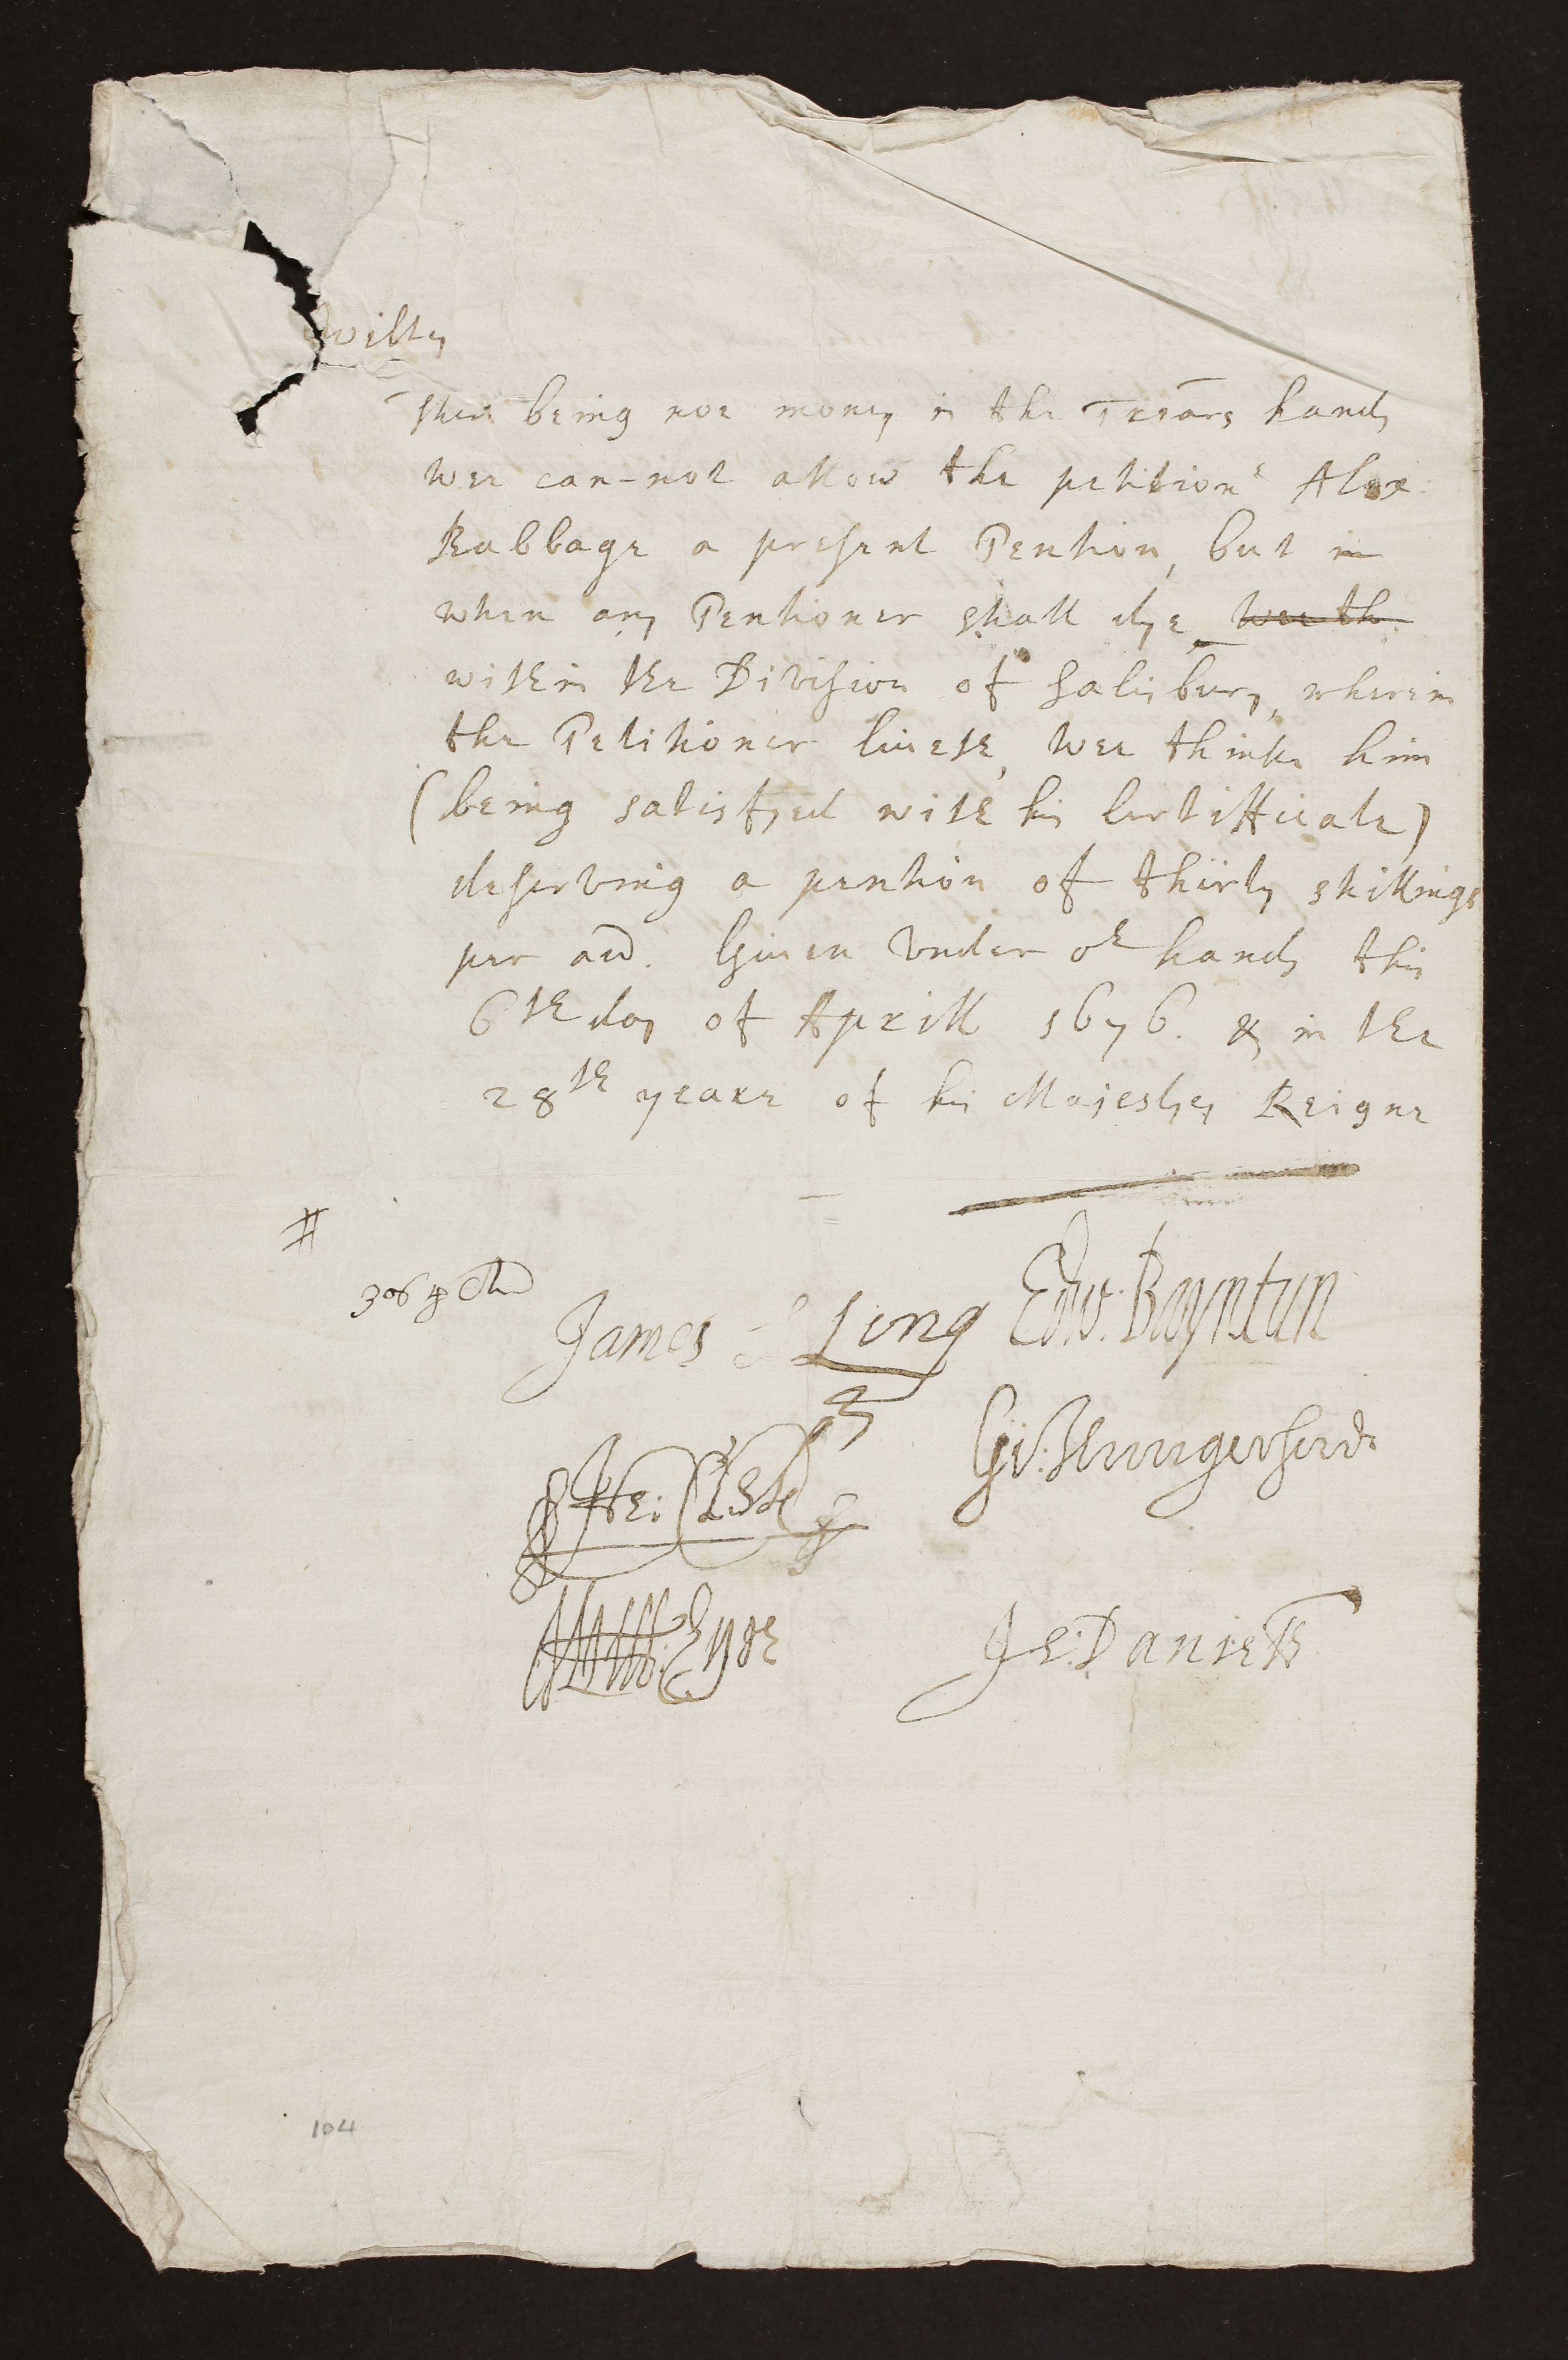 Wilts
There being noe money in the Treārs hands
wee can-not allow the petitionr Alex:
Babbage a present Pention, but in
when any Pentioner shall dye wee th
within the Division of Salisbury, wherein
the Petitioner liueth, wee thinke him
(being satisfyed with his Certifficate)
deserving a pention of thirty shillings
per ann̄. Giuen Vnder or hands this
6th day of Aprill 1676. & in the
28th yeare of his Majestyes Reigne
James Long Edw: Bayntun
Gi: Hungerford
Eyre
Je: Daniell
104